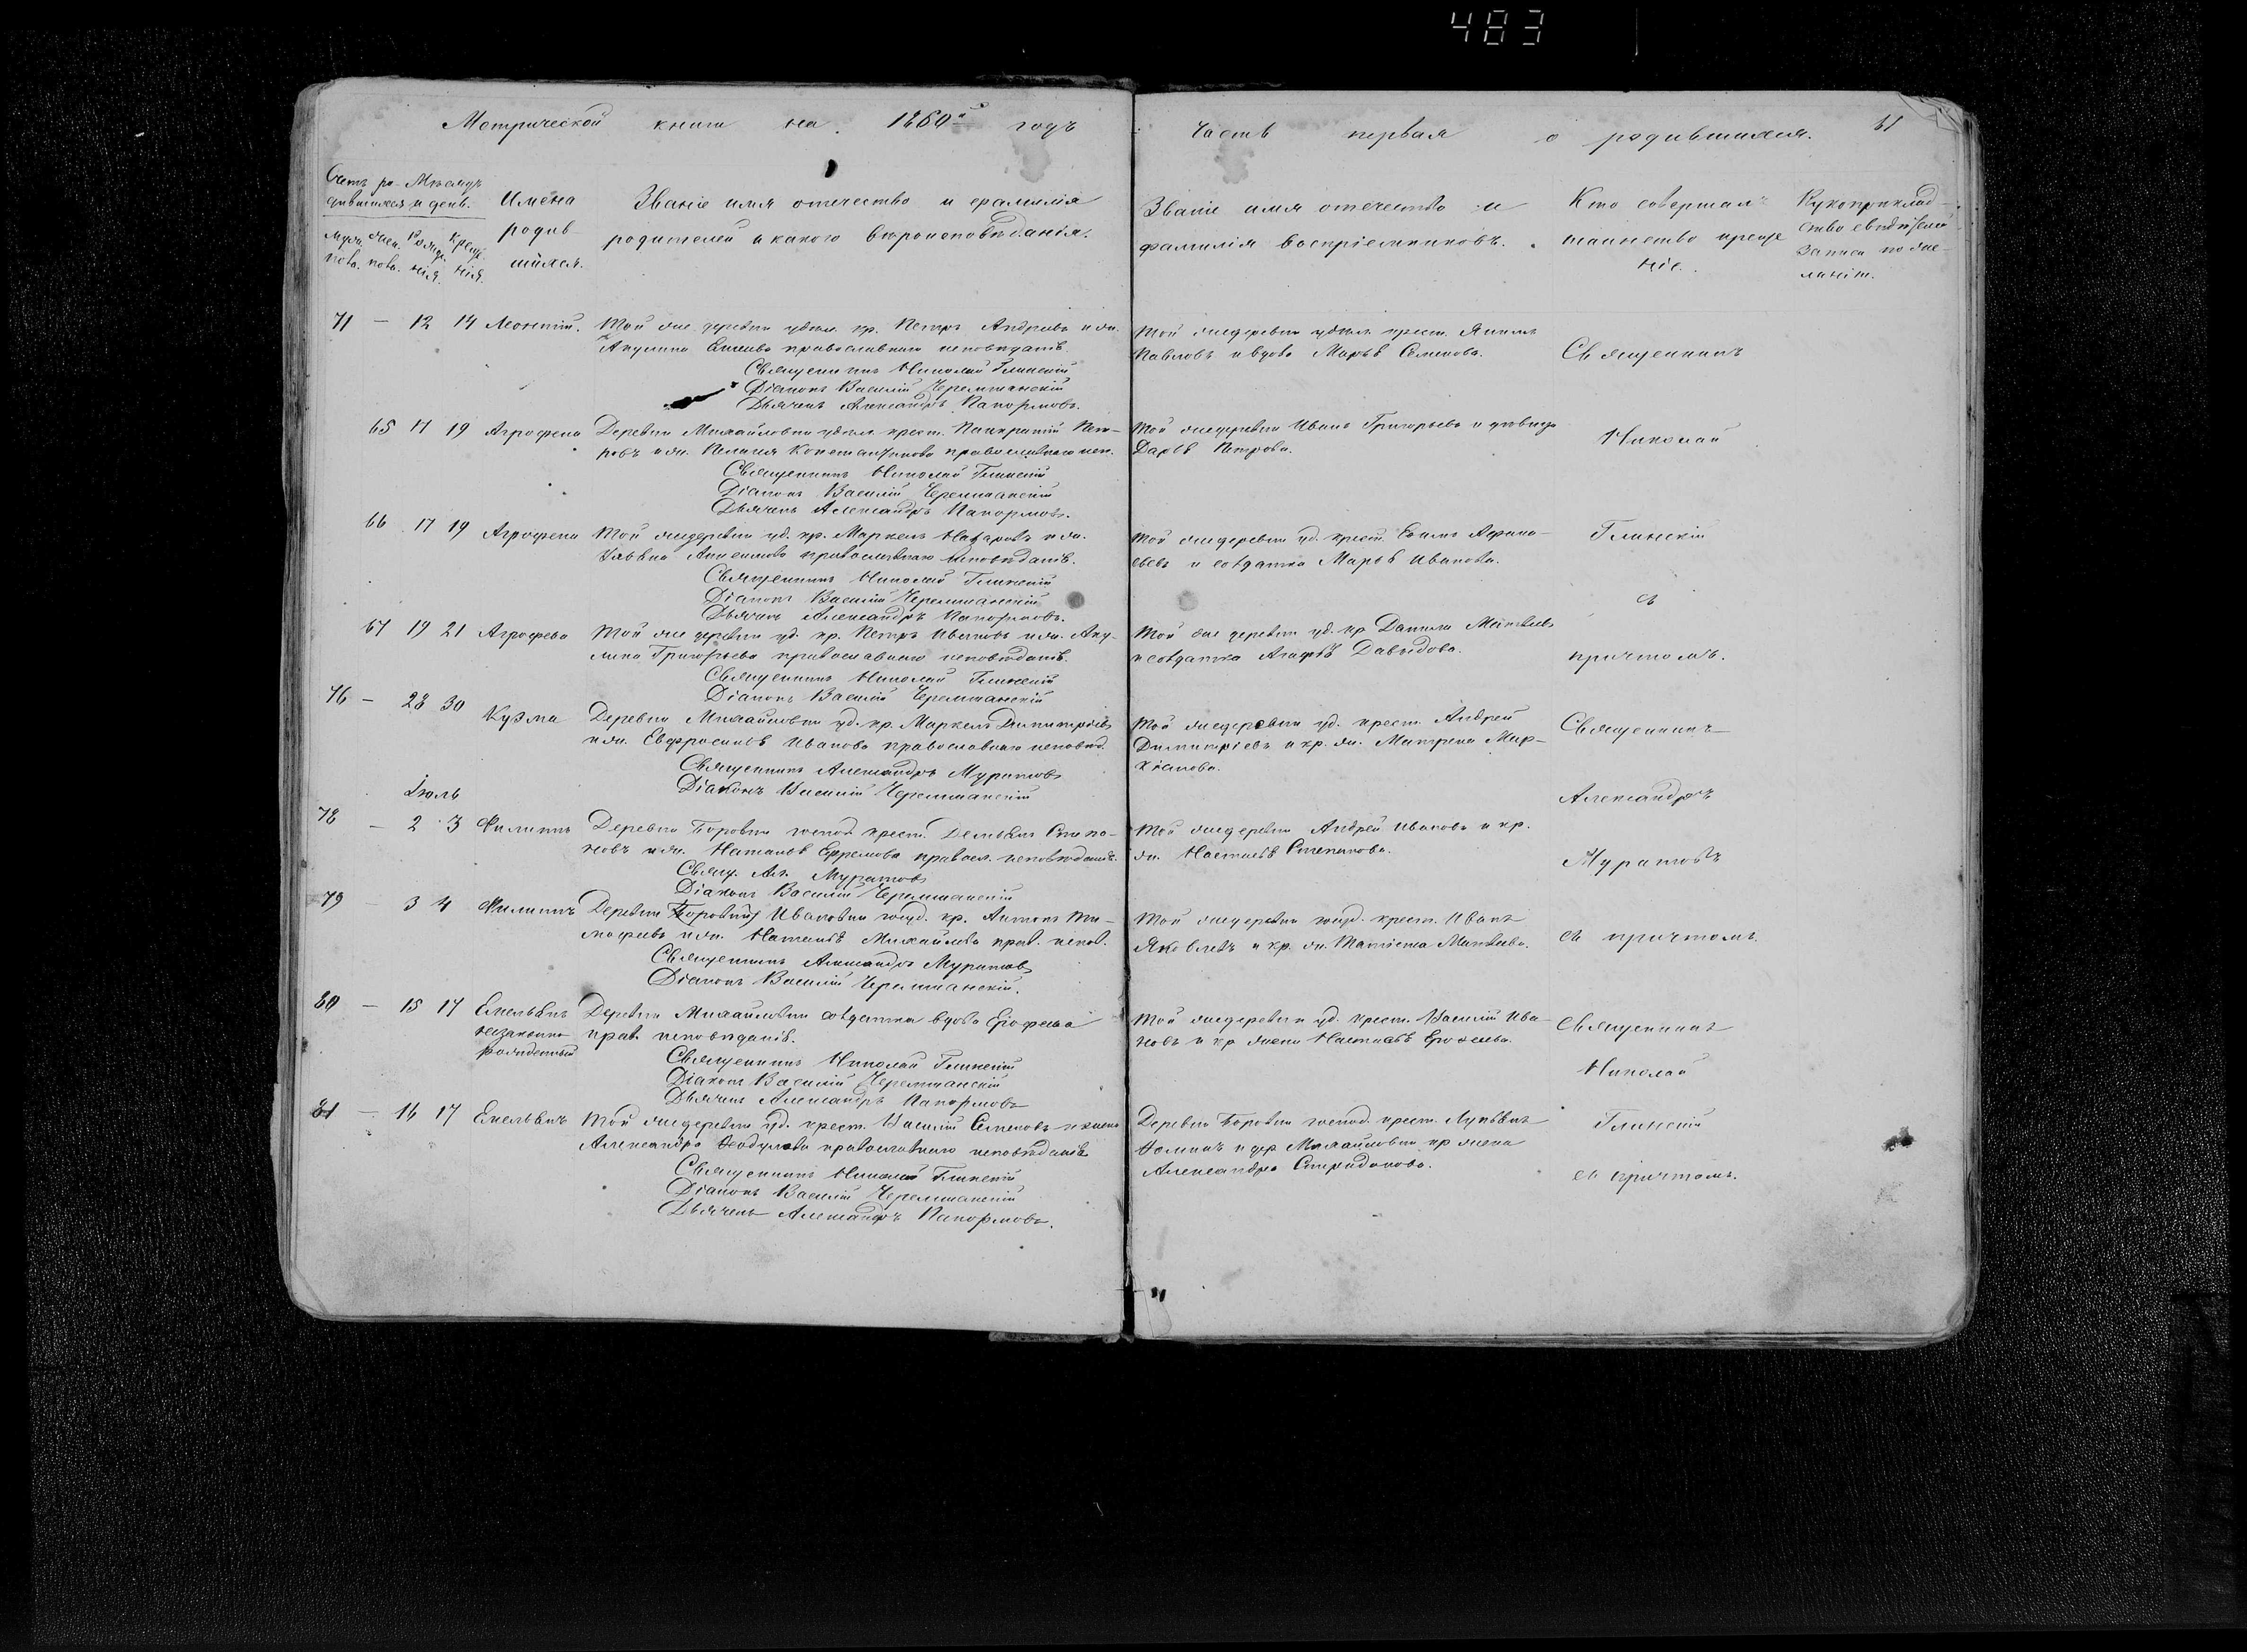 483
Метрической книги на 1860й годъ
Счетъ ро- Мѣсяцъ
дившихся и день.
Имена
родив-
шихся.
Званіе имя отечество и фамилія
родителей и какого вѣроисповѣданія.
71 — 12 14 Леонтій. Той же деревни удѣл. кр. Петръ Андреевъ и жн.
Акулина православнаго исповѣданія.
Священникъ Николай Глинскій
Діаконъ Василій Черемшанскій
Дьячекъ Александръ Папормовъ.
65 17 19 Агрофена Деревни Михайловки удѣл. крест. Панкратій Пет-
ровъ и жн. Пелагія Константинова православнаго исп.
Священникъ Николай Глинскій
Діаконъ Василій Черемшанскій
Дьячекъ Александръ Папормовъ.
66 17 19 Агрофена Той же деревни уд. кр. Маркелъ Назаровъ и жн.
православнаго исповѣданія.
Священникъ Николай Глинскій
Діаконъ Василій Черемшанскій
Дьячекъ Александръ Папормовъ.
67 19 21 Агрофена Той же деревни уд. кр. Петръ Ивановъ и жн. Аку-
лина Григорьева православнаго исповѣданія.
Священникъ Николай Глинскій
Діаконъ Василій Черемшанскій
76 — 28 30 Кузма Деревни Михайловки уд. кр. Маркелъ Димитріевъ
и жн. Евфросинія Иванова православнаго исповѣд.
Священникъ Александръ Муратовъ
Діаконъ Василій Черемшанскій
Іюль
78 — 2 3 Филиппъ Деревни Боровки господ. крест. Демьянъ Степа-
новъ и жн. Наталья Ефремова правосл. исповѣданія.
Свящ. Ал. Муратовъ
Діаконъ Василій Черемшанскій
79 — 3 4 Филиппъ Деревни Ивановки кр. Антонъ Ти-
мофеевъ и жн. Наталья Михайлова прав. испов.
Священникъ Александръ Муратовъ
Діаконъ Василій Черемшанскій.
80 — 15 17 Емельянъ Деревни Михайловки солдатка вдова Ерофеева
незаконно- прав. исповѣданія.
рожденный
Священникъ Николай Глинскій
Діаконъ Василій Черемшанскій
Дьячекъ Александръ Папормовъ
81 — 16 17 Емельянъ Той же деревни уд. крест. Василій Семеновъ и жена
Александра православнаго исповѣданія
Священникъ Николай Глинскій
Діаконъ Василій Черемшанскій
Дьячекъ Александръ Папормовъ.
часть первая о родившихся. 61
Званіе имя отечество и
фамилія воспріемниковъ.
Кто совершалъ
таинство креще
нія.
Рукоприклад-
ство свидѣтелей
записи по же-
ланію.
Той же деревни удѣл. крест.
Павловъ и вдова Марья Семенова.
Той же деревни Иванъ Григорьевъ и дѣвица
Дарья Петрова.
Той же деревни уд. крест.
и солдатка Марья Иванова.
Той же деревни уд. кр. Данила Матвѣевъ
и солдатка Агафья Давыдова.
Той же деревни уд. крест. Андрей
Димитріевъ и кр. жн. Матрена Мар-
Той же деревни Андрей Ивановъ и кр.
жн. Настасья Степанова.
Той же деревни крест. Иванъ
Яковлевъ и кр. жн. Татіана Матвѣева.
Той же деревни уд. крест. Василій Ива-
новъ и кр. жена Настасья Ерофеева.
Деревни Боровки господ. крест. Лукьянъ
Фоминъ и дер. Михайловки кр. жена
Александра Спиридонова.
Священникъ
Николай
Глинскій
съ
причтомъ.
Священникъ
Александръ
Муратовъ
съ причтомъ.
Священникъ
Николай
Глинскій
съ причтомъ.